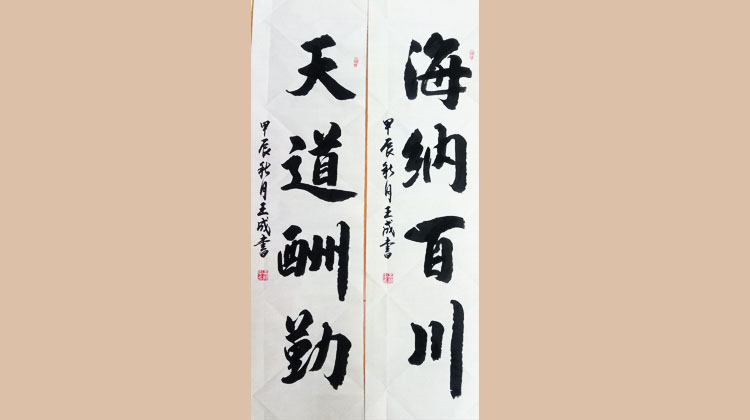 海纳百川
甲辰秋月王成书
天道酬勤
甲辰秋月王成书